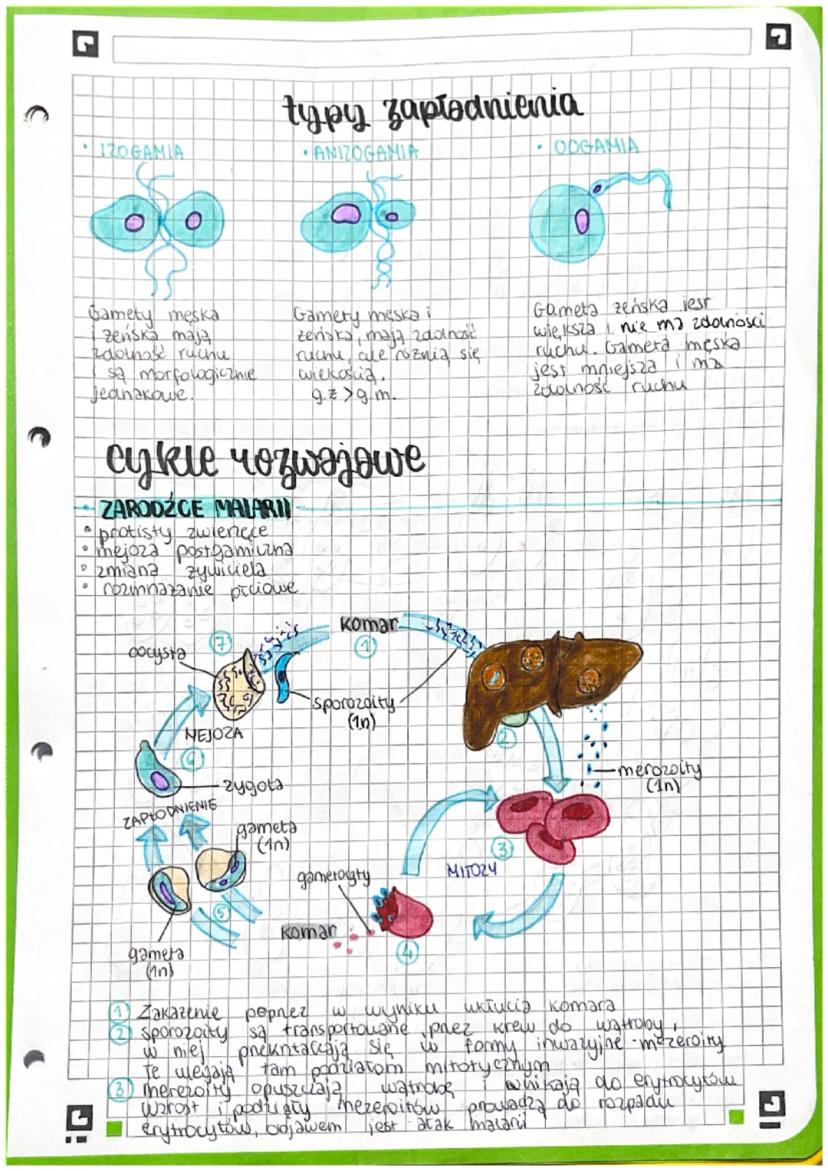 typy zapłodnienia
• IZOGAMIA
• ANIZOGAMIA
• OOGAMIA
Gamety męska
i żeńska mają
zdolność ruchu
i są morfologicznie
jednakowe.
Gamety męska i
żeńska, mają zdolność
ruchu, ale różnią się
wielkością.
g.ż > g.m.
Gameta żeńska jest
większa i nie ma zdolności
ruchu. Gameta męska
jest mniejsza i ma
zdolność ruchu
cykle rozwojowe
ZARODŹCE MALARII
• protisty zwierzęce
• mejoza postgamiczna
• zmiana żywiciela
• rozmnażanie płciowe
komar
1
7
oocysta
sporozoity
(1n)
MEJOZA
2
6
zygota
merozoity
(1n)
ZAPŁODNIENIE
gameta
(1n)
3
MITOZY
gametocyty
5
komar
4
gameta
(1n)
1 Zakażenie poprzez w wyniku ukłucia komara
2 sporozoity są transportowane przez krew do wątroby,
w niej przekształcają się w formy inwazyjne - mezeroity
Te ulegają tam podziałom mitotycznym
3 merezoity opuszczają wątrobę i wnikają do erytrocytów
wzrost i podziały mezeroitów prowadzą do rozpadu
erytrocytów, objawem jest atak malarii